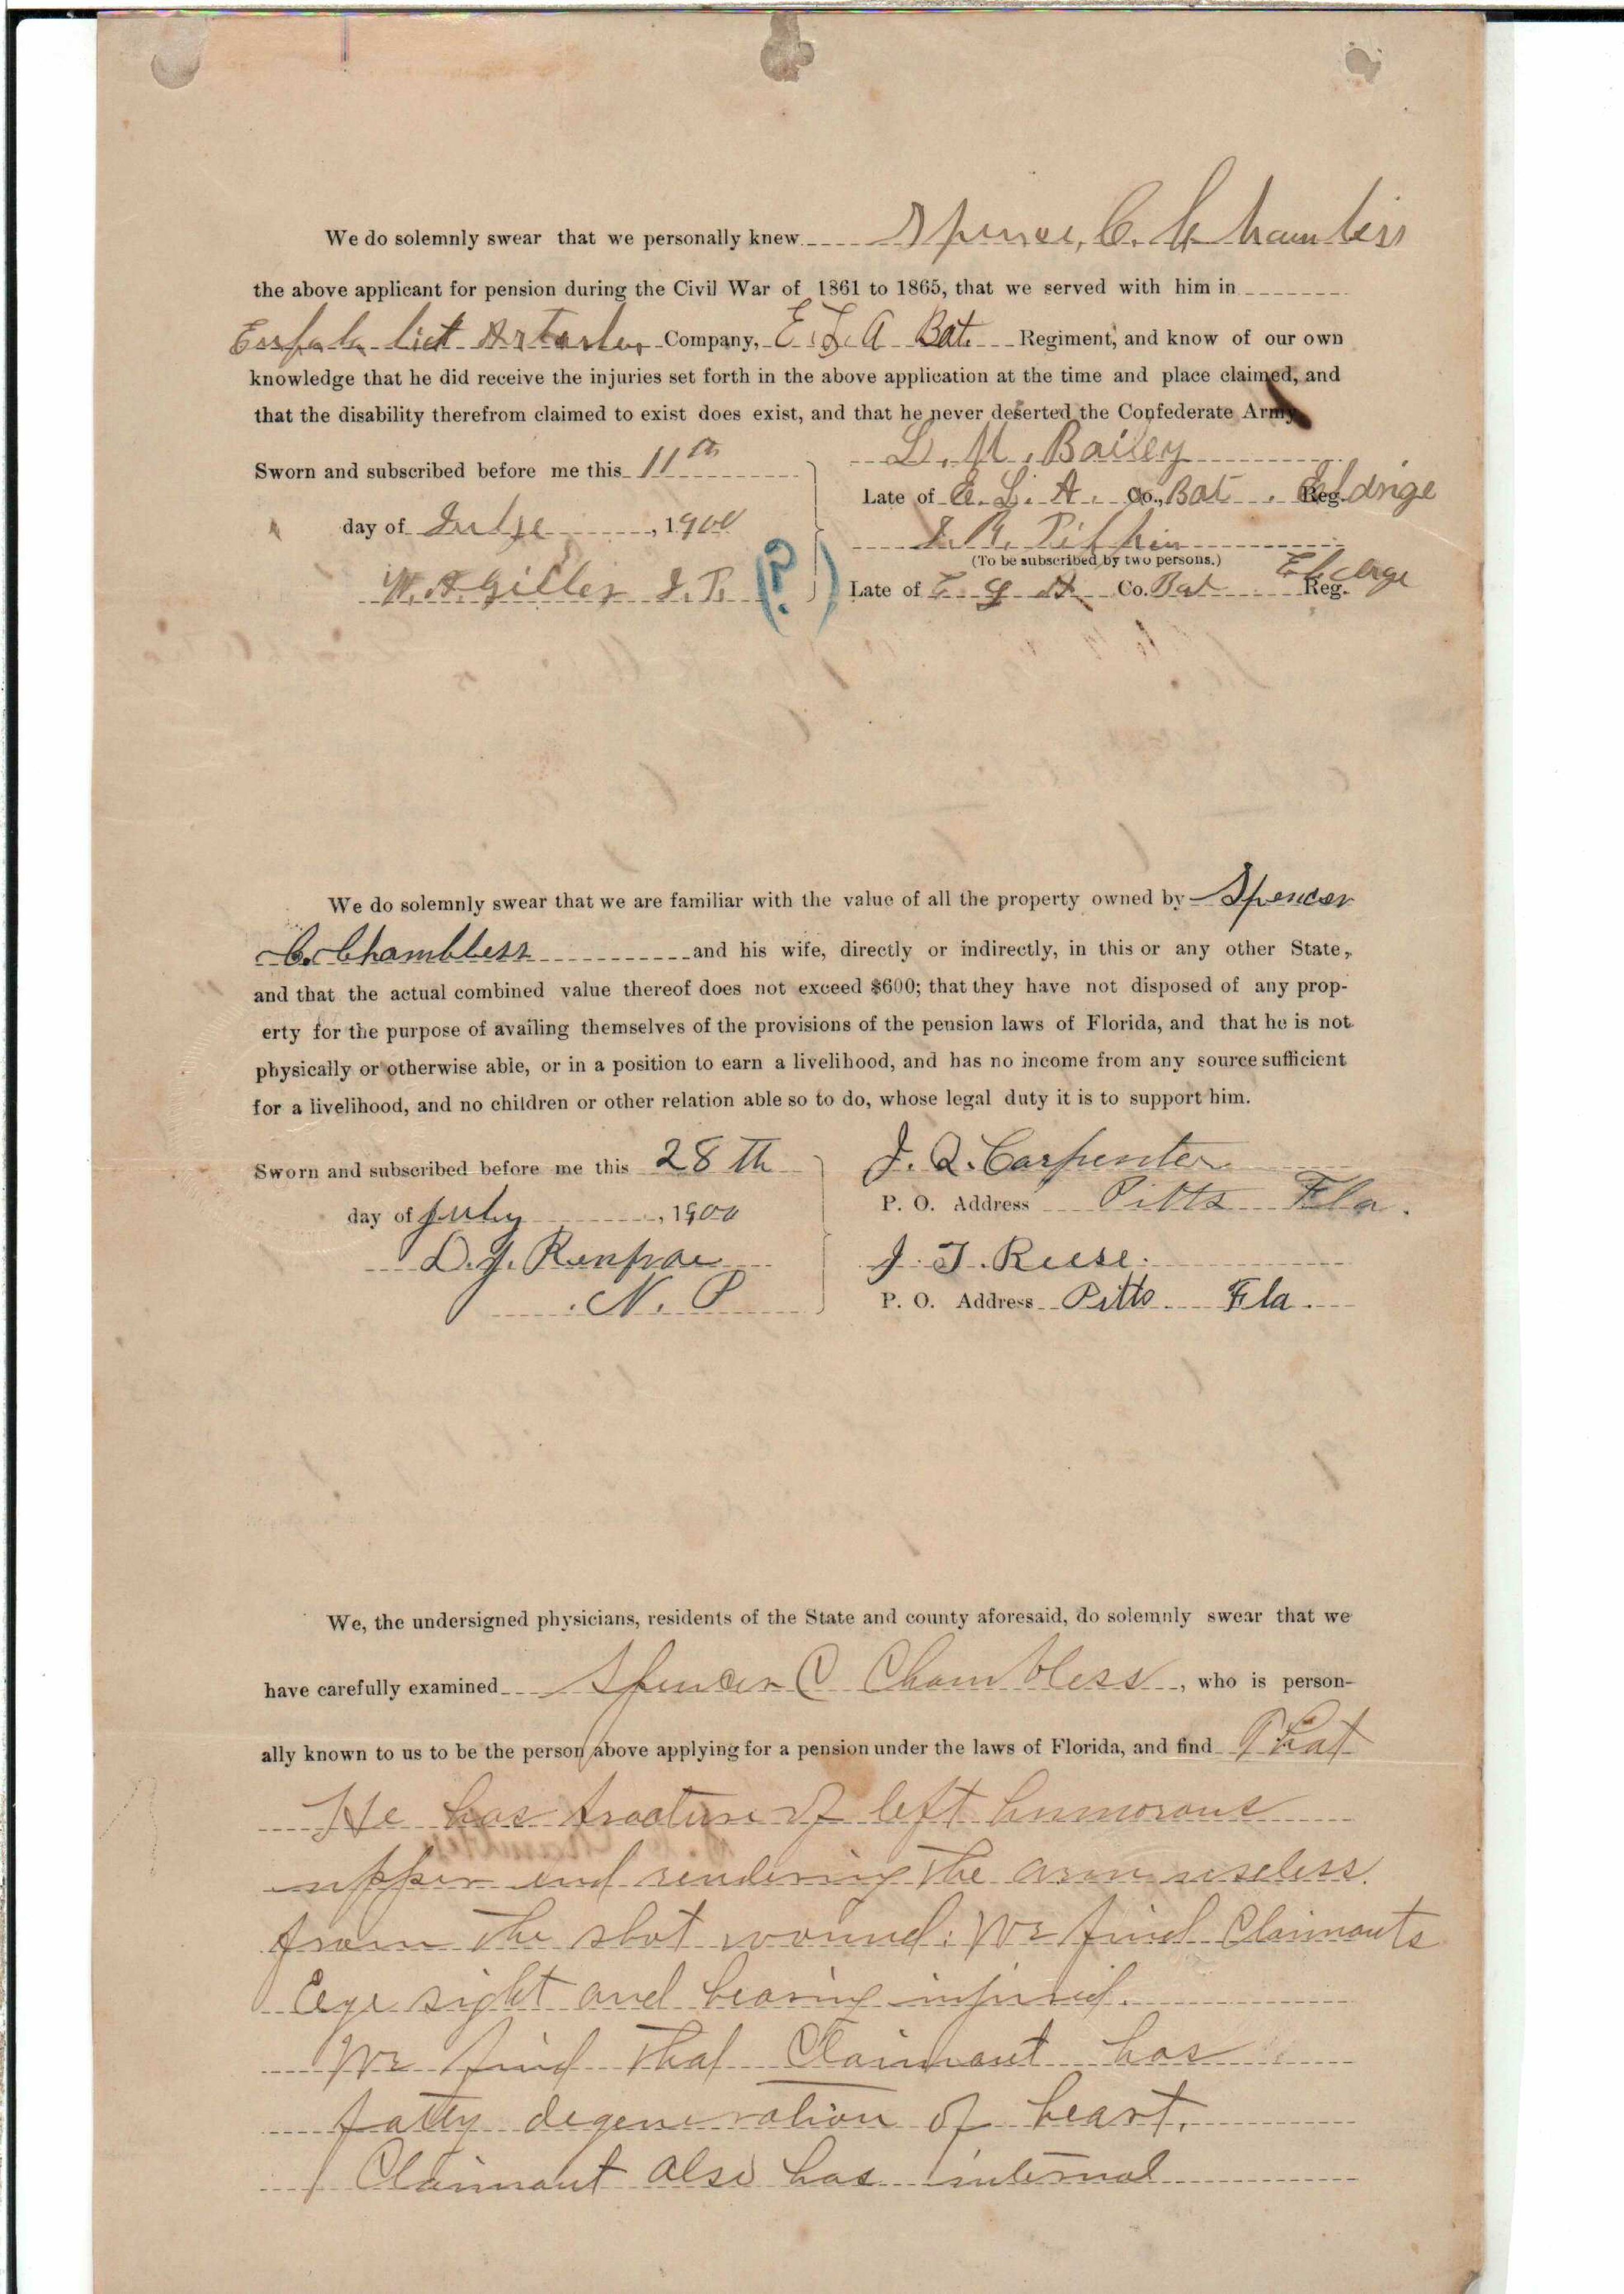 We do solemnly swear that we personally knew Spencer, C. Chambliss
the above applicant for pension during the Civil War of 1861 to 1865, that we served with him in
Eufala Liet Artarler Company, E. L. A Bat. Regiment, and know of our own
knowledge that he did receive the injuries set forth in the above application at the time and place claimed, and
that the disability therefrom claimed to exist does exist, and that he never deserted the Confederate Army.
Sworn and subscribed before me this 11th
day of , 1900
W. A. Giller J. P. (?)
Bailey
Late of E. L. A. Co., Bat. Reg. Eldrige
(To be subscribed by two persons.)
Late of Co. Bat Reg.
We do solemnly swear that we are familiar with the value of all the property owned by Spencer
C. Chambless and his wife, directly or indirectly, in this or any other State,
and that the actual combined value thereof does not exceed $600; that they have not disposed of any prop-
erty for the purpose of availing themselves of the provisions of the pension laws of Florida, and that he is not
physically or otherwise able, or in a position to earn a livelihood, and has no income from any source sufficient
for a livelihood, and no children or other relation able so to do, whose legal duty it is to support him.
Sworn and subscribed before me this 28th
day of July , 1900
D. J. Renfroe
N. P
J. Q. Carpenter
P. O. Address Pitts Fla.
J. T. Reese.
P. O. Address Pitts Fla.
We, the undersigned physicians, residents of the State and county aforesaid, do solemnly swear that we
have carefully examined Spencer C Chambless, who is person-
ally known to us to be the person above applying for a pension under the laws of Florida, and find That
He has fracture of left humorous
upper end rendering the arm useless
from the shot wound. We find Claimants
Eye sight and hearing injured.
We find that Claimant has
fatty degeneration of heart.
Claimant also has internal